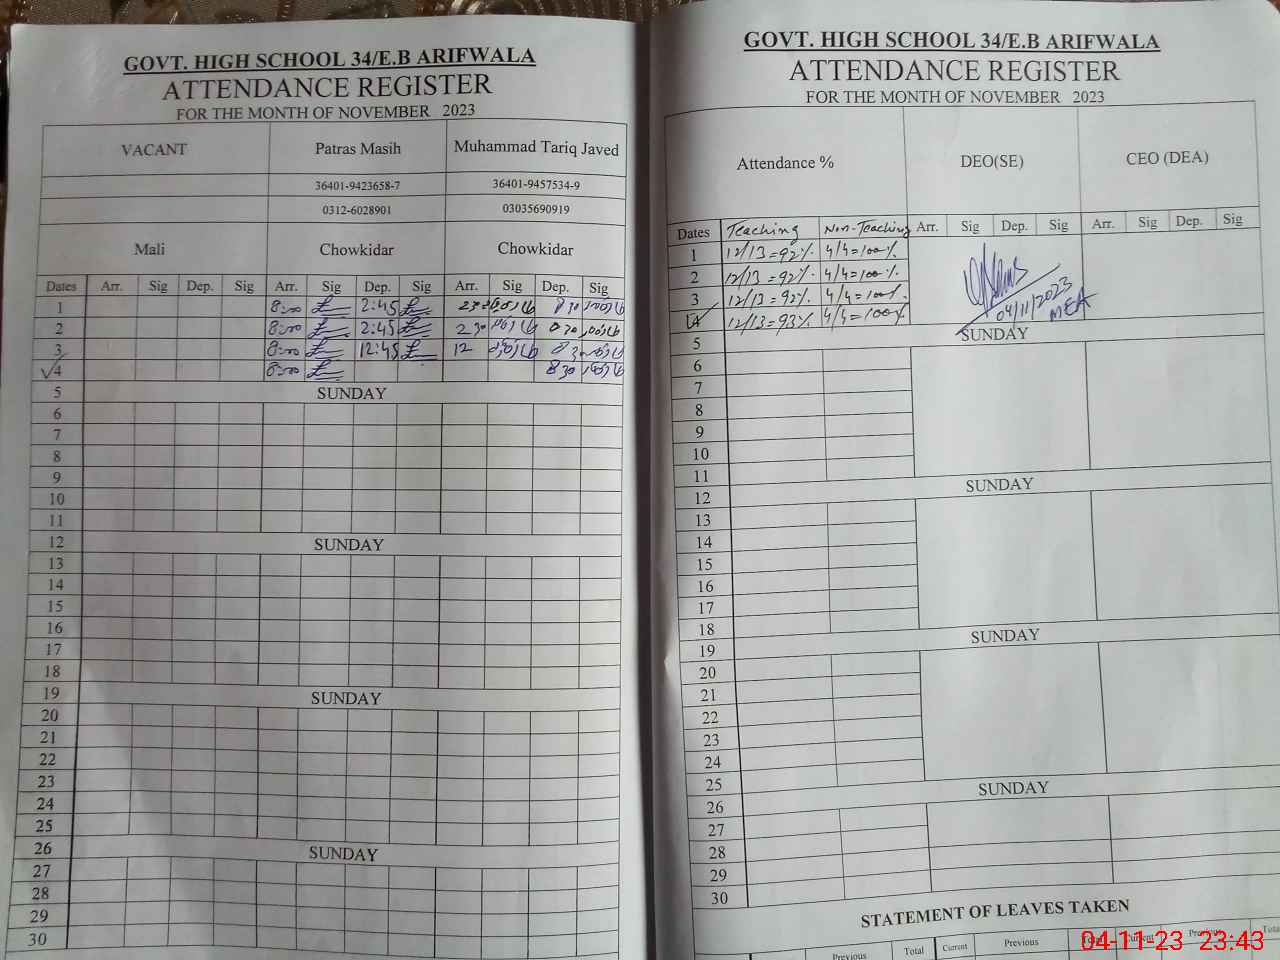 GOVT. HIGH SCHOOL 34/E.B ARIFWALA
ATTENDANCE REGISTER
FOR THE MONTH OF NOVEMBER 2023
VACANT Patras Masih Muhammad Tariq Javed
36401-9423658-7 36401-9457534-9
0312-6028901 03035690919
Mali Chowkidar Chowkidar
Dates Arr. Sig Dep. Sig Arr. Sig Dep. Sig Arr. Sig Dep. Sig
1 8:00 2:45 2 30 8 30
2 8:00 2:45 2 30 8 30
3 8:00 12:45 12 8 30
4 8:00 8 30
5 SUNDAY
6
7
8
9
10
11
12 SUNDAY
13
14
15
16
17
18
19 SUNDAY
20
21
22
23
24
25
26 SUNDAY
27
28
29
30
GOVT. HIGH SCHOOL 34/E.B ARIFWALA
ATTENDANCE REGISTER
FOR THE MONTH OF NOVEMBER 2023
Attendance % DEO(SE) CEO (DEA)
Dates Teaching Non-Teaching Arr. Sig Dep. Sig Arr. Sig Dep. Sig
1 12/13=92% 4/4=100%
2 12/13=92% 4/4=100%
3 12/13=92% 4/4=100%
4 12/13=93% 4/4=100%
04/11/2023
MEA
5 SUNDAY
6
7
8
9
10
11
12 SUNDAY
13
14
15
16
17
18
19 SUNDAY
20
21
22
23
24
25
26 SUNDAY
27
28
29
30
STATEMENT OF LEAVES TAKEN
Previous Total Current Previous Total Current Previous Total
04-11-23 23:43